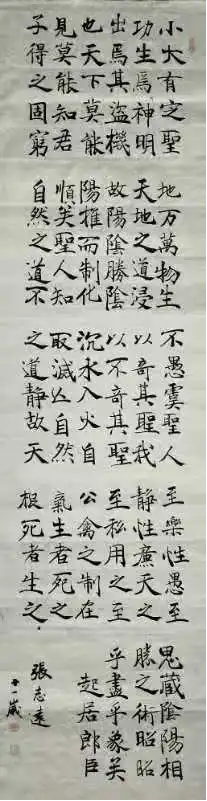 小大有定聖
功生焉神明
出焉其盜機
也天下莫能
見莫能知君
子得之固窮
地万萬物生
天地之道浸
故陽陰勝陰
陽推而制化
順矣聖人知
自然之道不
不愚虞聖人
以奇其聖我
以不奇其聖
沉水入火自
取滅亡自然
之道靜故天
至樂性愚至
靜性廉天之
至私用之至
公禽之制在
氣生者死之
根死者生之
鬼藏陰陽相
勝之術昭昭
乎盡乎象矣
起居郎臣
張志遠
十一歲